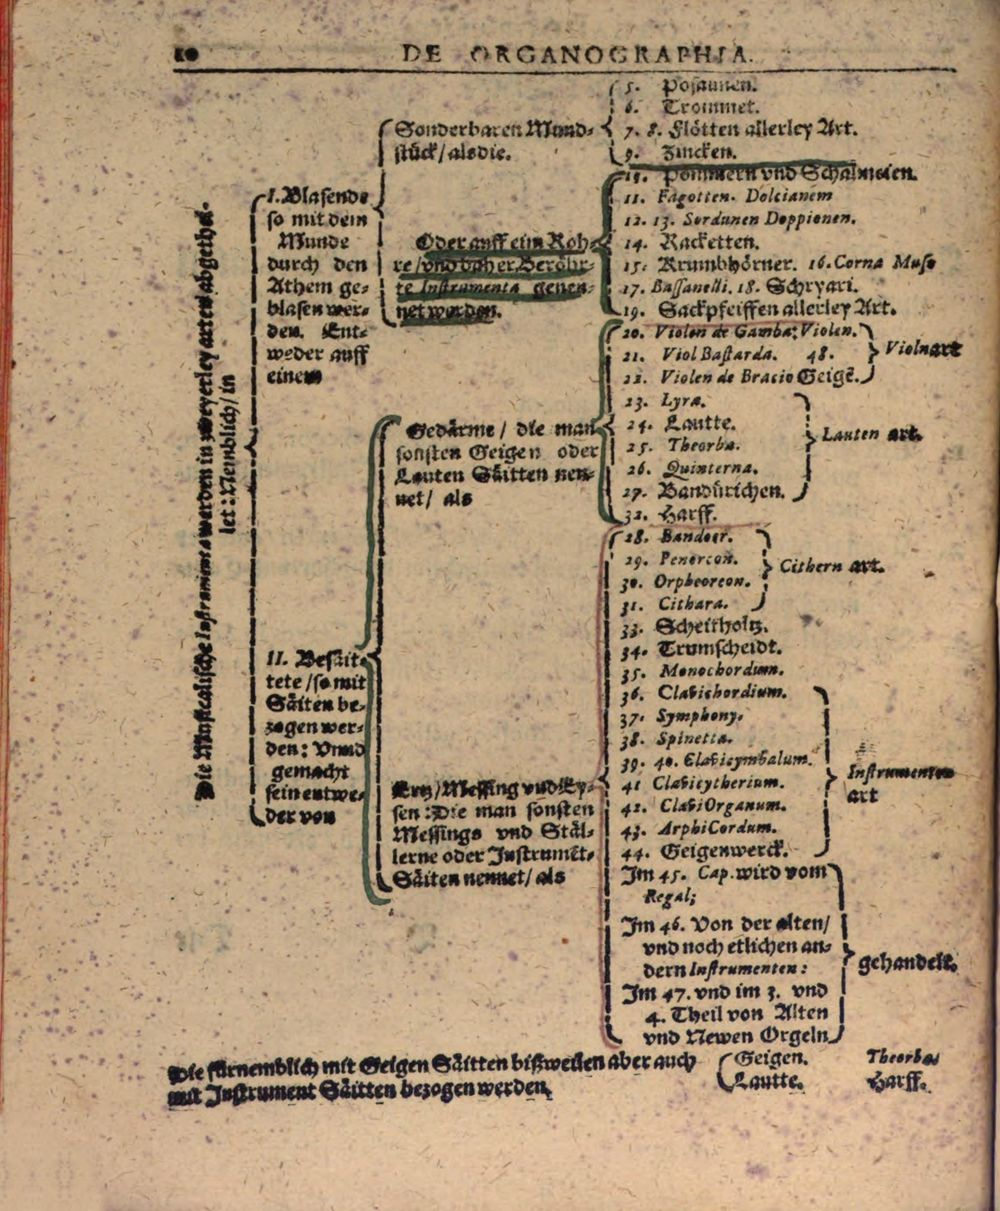 10 DE ORGANOGRAPHIA.
Die Musicalische Instrumenta werden in zweyerley arten abgethei-
let: Nemblich/ in
I. Blasende
so mit dem
Munde
durch den
Athem ge-
blasen wer-
den. Ent-
weder auff
einem
Sonderbaren Mund-
stück/ als die.
5. Posaunen.
6. Trommet.
7. 8. Flötten allerley Art.
9. Zincken.
Oder auff eim Roh-
re/ vnd daher Beröhr-
te Instrumenta genen-
net werden.
10. Pommern vnd Schalmeien.
11. Fagotten. Dolcianem
12. 13. Sordunen Doppionen.
14. Racketten.
15. Krumbhörner. 16. Corna Muse
17. Bassanelli. 18. Schryari.
19. Sackpfeiffen allerley Art.
II. Besäit-
tete/ so mit
Säiten be-
zogen wer-
den: Vnnd
gemacht
sein entwe-
der von
Gedärme/ die man
sonsten Geigen oder
Lauten Säitten nen-
net/ als
20. Violen de Gamba: Violen.
21. Viol Bastarda. 48.
22. Violen de Bracio Geigẽ.
Violn art
23. Lyra.
24. Lautte.
25. Theorba.
26. Quinterna.
27. Bandürichen.
Lauten art.
32. Harff.
Ertz/ Messing vnd Ey-
sen: Die man sonsten
Messings vnd Stäl-
lerne oder Instrumẽt-
Säiten nennet/ als
28. Bandoer.
29. Penorcon.
30. Orpheoreon.
31. Cithara.
Cithern art.
33. Scheitholtz.
34. Trumscheidt.
35. Monochordum.
36. Clavichordium.
37. Symphony.
38. Spinetta.
39. 40. Clavicymbalum.
41 Clavicytherium.
42. ClaviOrganum.
43. ArpiCordum.
44. Geigenwerck.
Instrumenten
art
Im 45. Cap. wird vom
Regal;
Im 46. Von der alten/
vnd noch etlichen an-
dern Instrumenten:
Im 47. vnd im 3. vnd
4. Theil von Alten
vnd Newen Orgeln
gehandelt.
Die fürnemblich mit Geigen Säitten bißweilen aber auch
mit Instrument Säitten bezogen werden,
Geigen. Theorba
Lautte. Harff.